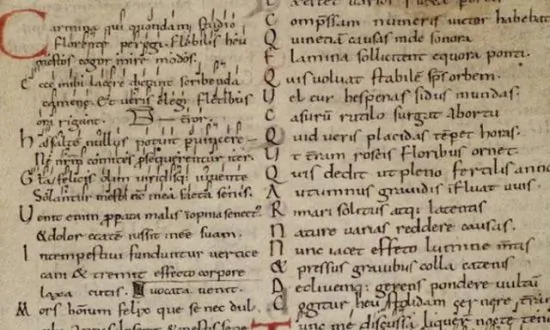 Carmina qui quondam studio
Florente peregi. flebilis heu
mestos cogor inire modos.
Ecce mihi lacere dictant scribenda
camene. & veris elegi fletibus
ora rigant. Terror.
has saltē nullus potuit puincere
Ne nr̄m comites psequerentur iter.
Gloria felicis olim viridisq; iuuente
Solantur mesti nc̄ mea fata senis.
Venit enim ppata malis inopina senect'
& dolor etatē iussit inee suam.
Intempestivi funduntur vertice
cani & tremit effeto corpore
laxa cutis. vocata venit.
Mors hominum felix que se nec dul
Compsam numeris victor habebat
Quinetiā causas unde sonora
Flamina sollicitent equora ponti.
Quis voluat stabilē sps orbem.
Vel cur hesperias sidus in undas:
Casurū rutilo surgat abortu
Quid veris placidas tēpet horas.
Ut terram roseis floribus ornet.
Quis dedit ut pleno fertilis anno
Autumnus gravidis ifluat uvis.
Rimari solitus atq; latentis
Nature varias reddere causas.
Nunc iacet effeto lumine mtis
& pressus gravibus colla catenis
Decliuemq; gerens pondere vultū
Cogitur heu stolidam cernere
Tunc me discussa liquer nocte ten